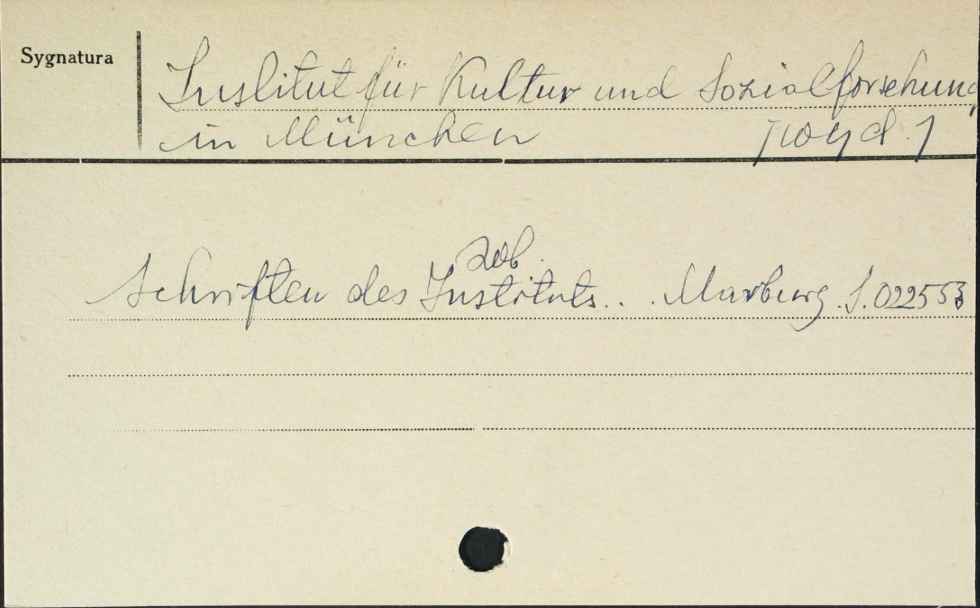 Sygnatura
Institut für Kultur und Sozialforschung
in München [wyd.]
zob.
Schriften des Instituts... Marburg. S.022553